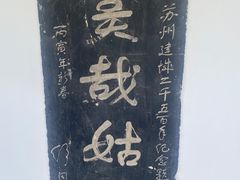 苏州建城二千五百年纪念
美哉姑
丙寅年新春